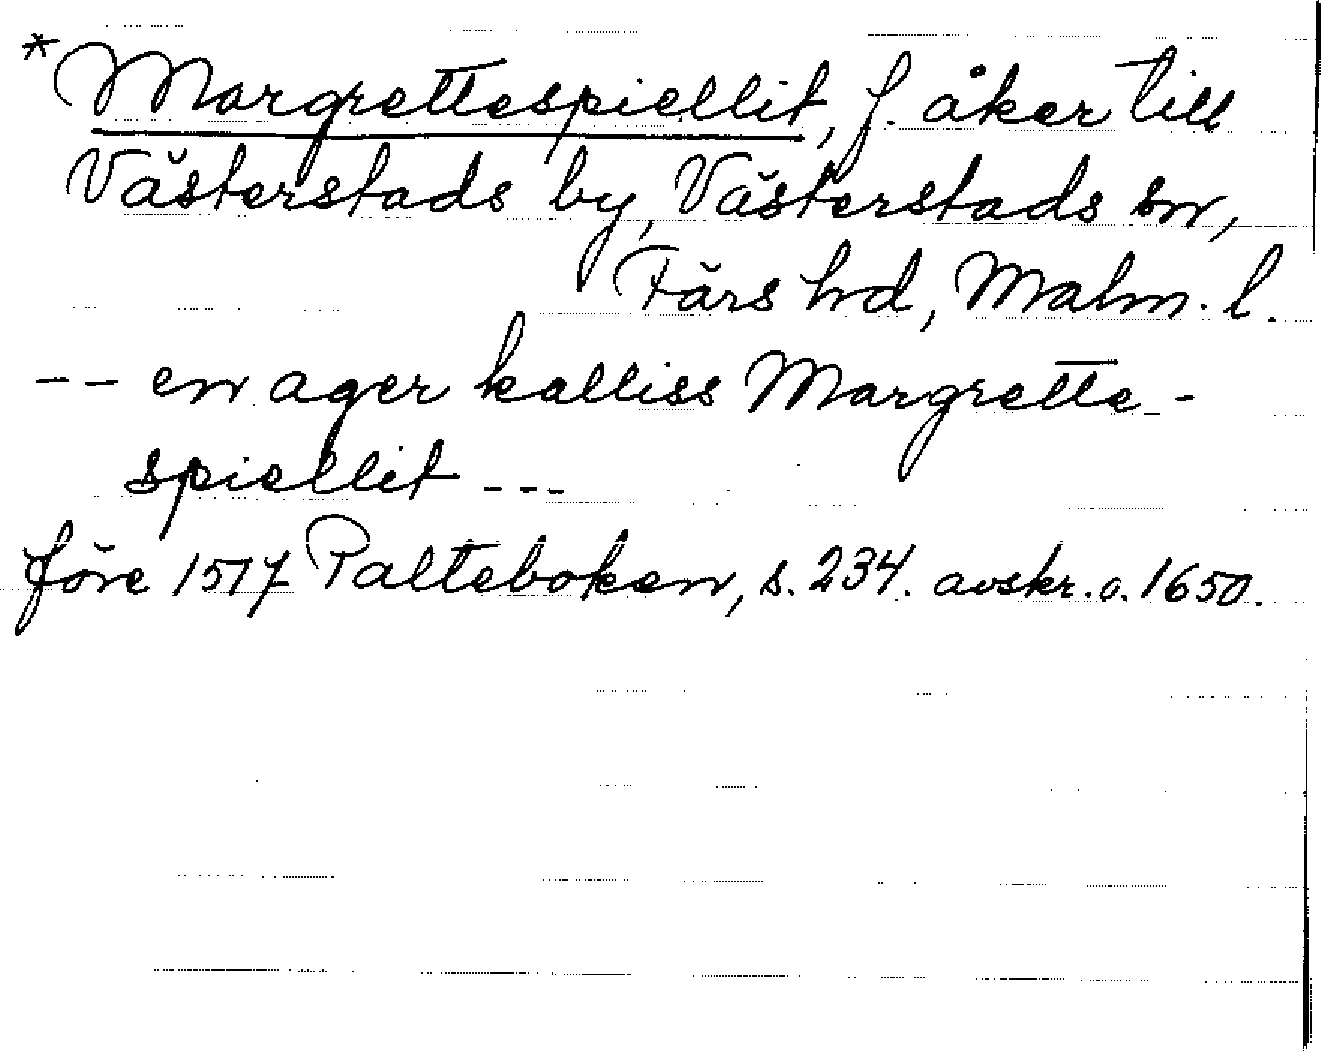 *Margrettespiellit, f. åker till
Västerstads by, Västerstads sn,
Färs hd, Malm. l.
-- en ager kalliss Margrette-
spiellit ---
före 1517 Palteboken, s. 234. avskr. o. 1650.